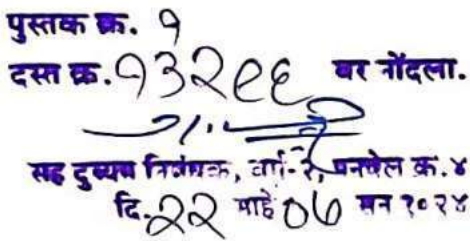 पुस्तक क्र. १
दस्त क्र. १३२९९६ वर नोंदला.
सह दुय्यम निबंधक, वर्ग-२, पनवेल क्र. ४
दि. २२ माहे ०७ सन २०२४